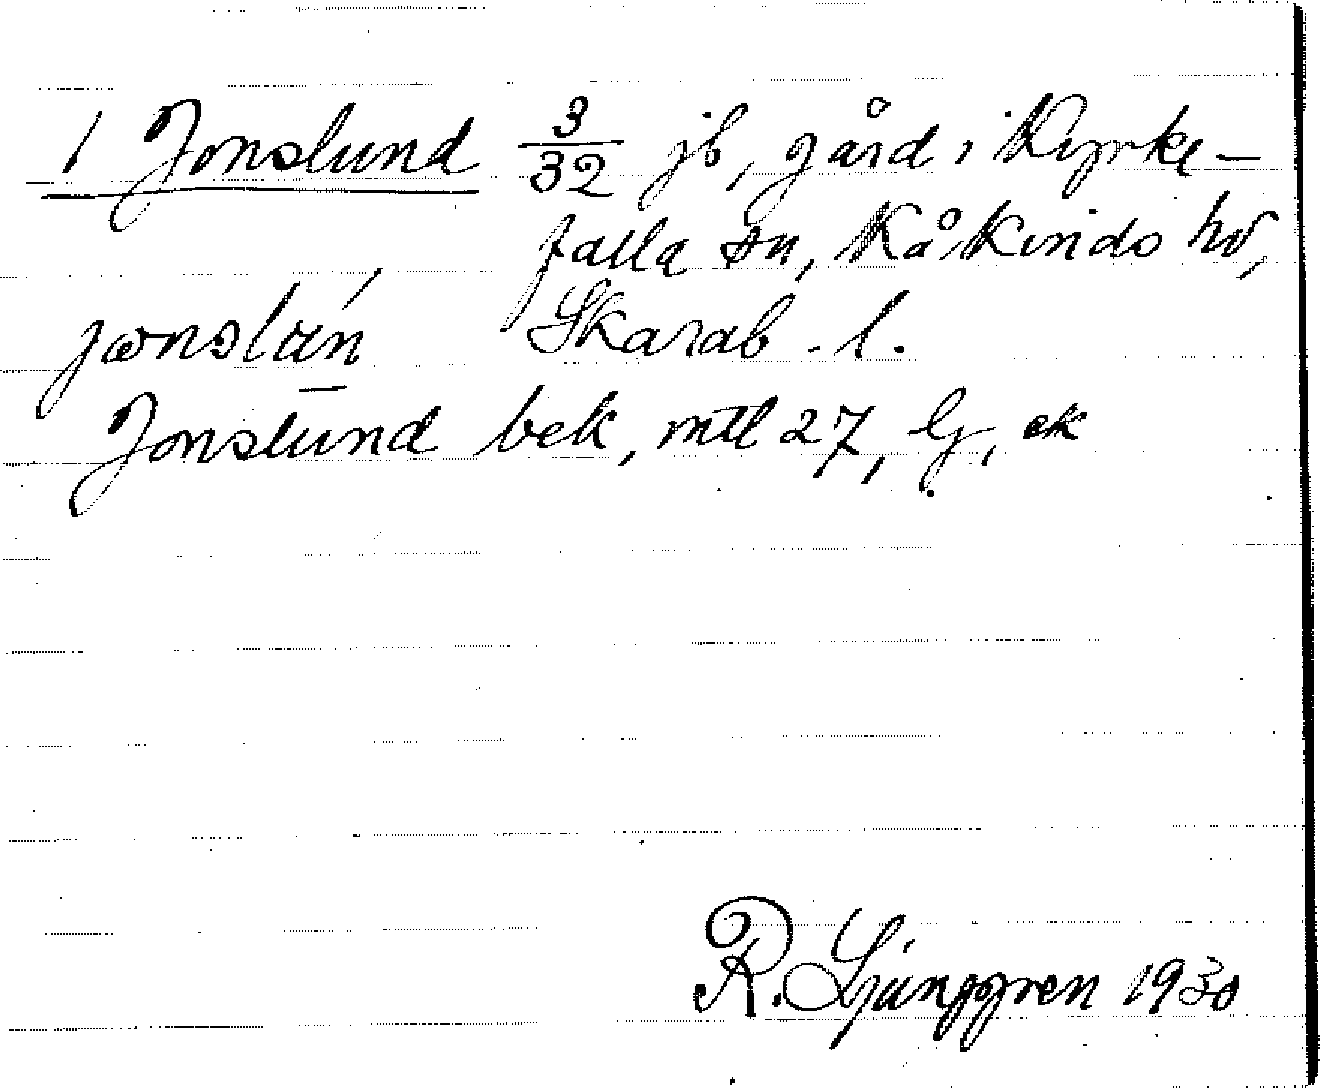 1 Jonslund 3/32 jb, gård i Kyrke-
falla sn, Kåkinds hd,
Skarab. l.
Jonslund bek, mtl 27, Lj, ek
R. Ljunggren 1930